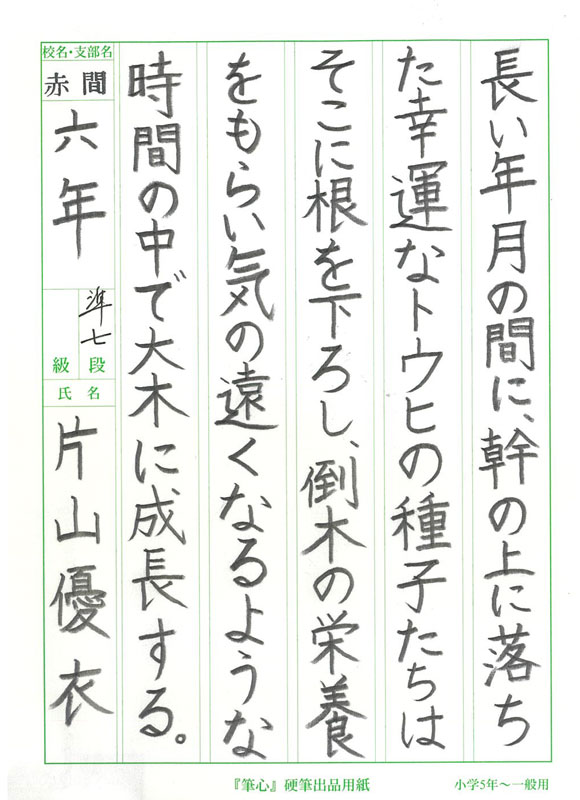 長い年月の間に、幹の上に落ち
た幸運なトウヒの種子たちは
そこに根を下ろし、倒木の栄養
をもらい気の遠くなるような
時間の中で大木に成長する。
校名・支部名
赤間
六年
準七
段
級
氏名
片山優衣
『筆心』硬筆出品用紙
小学5年〜一般用